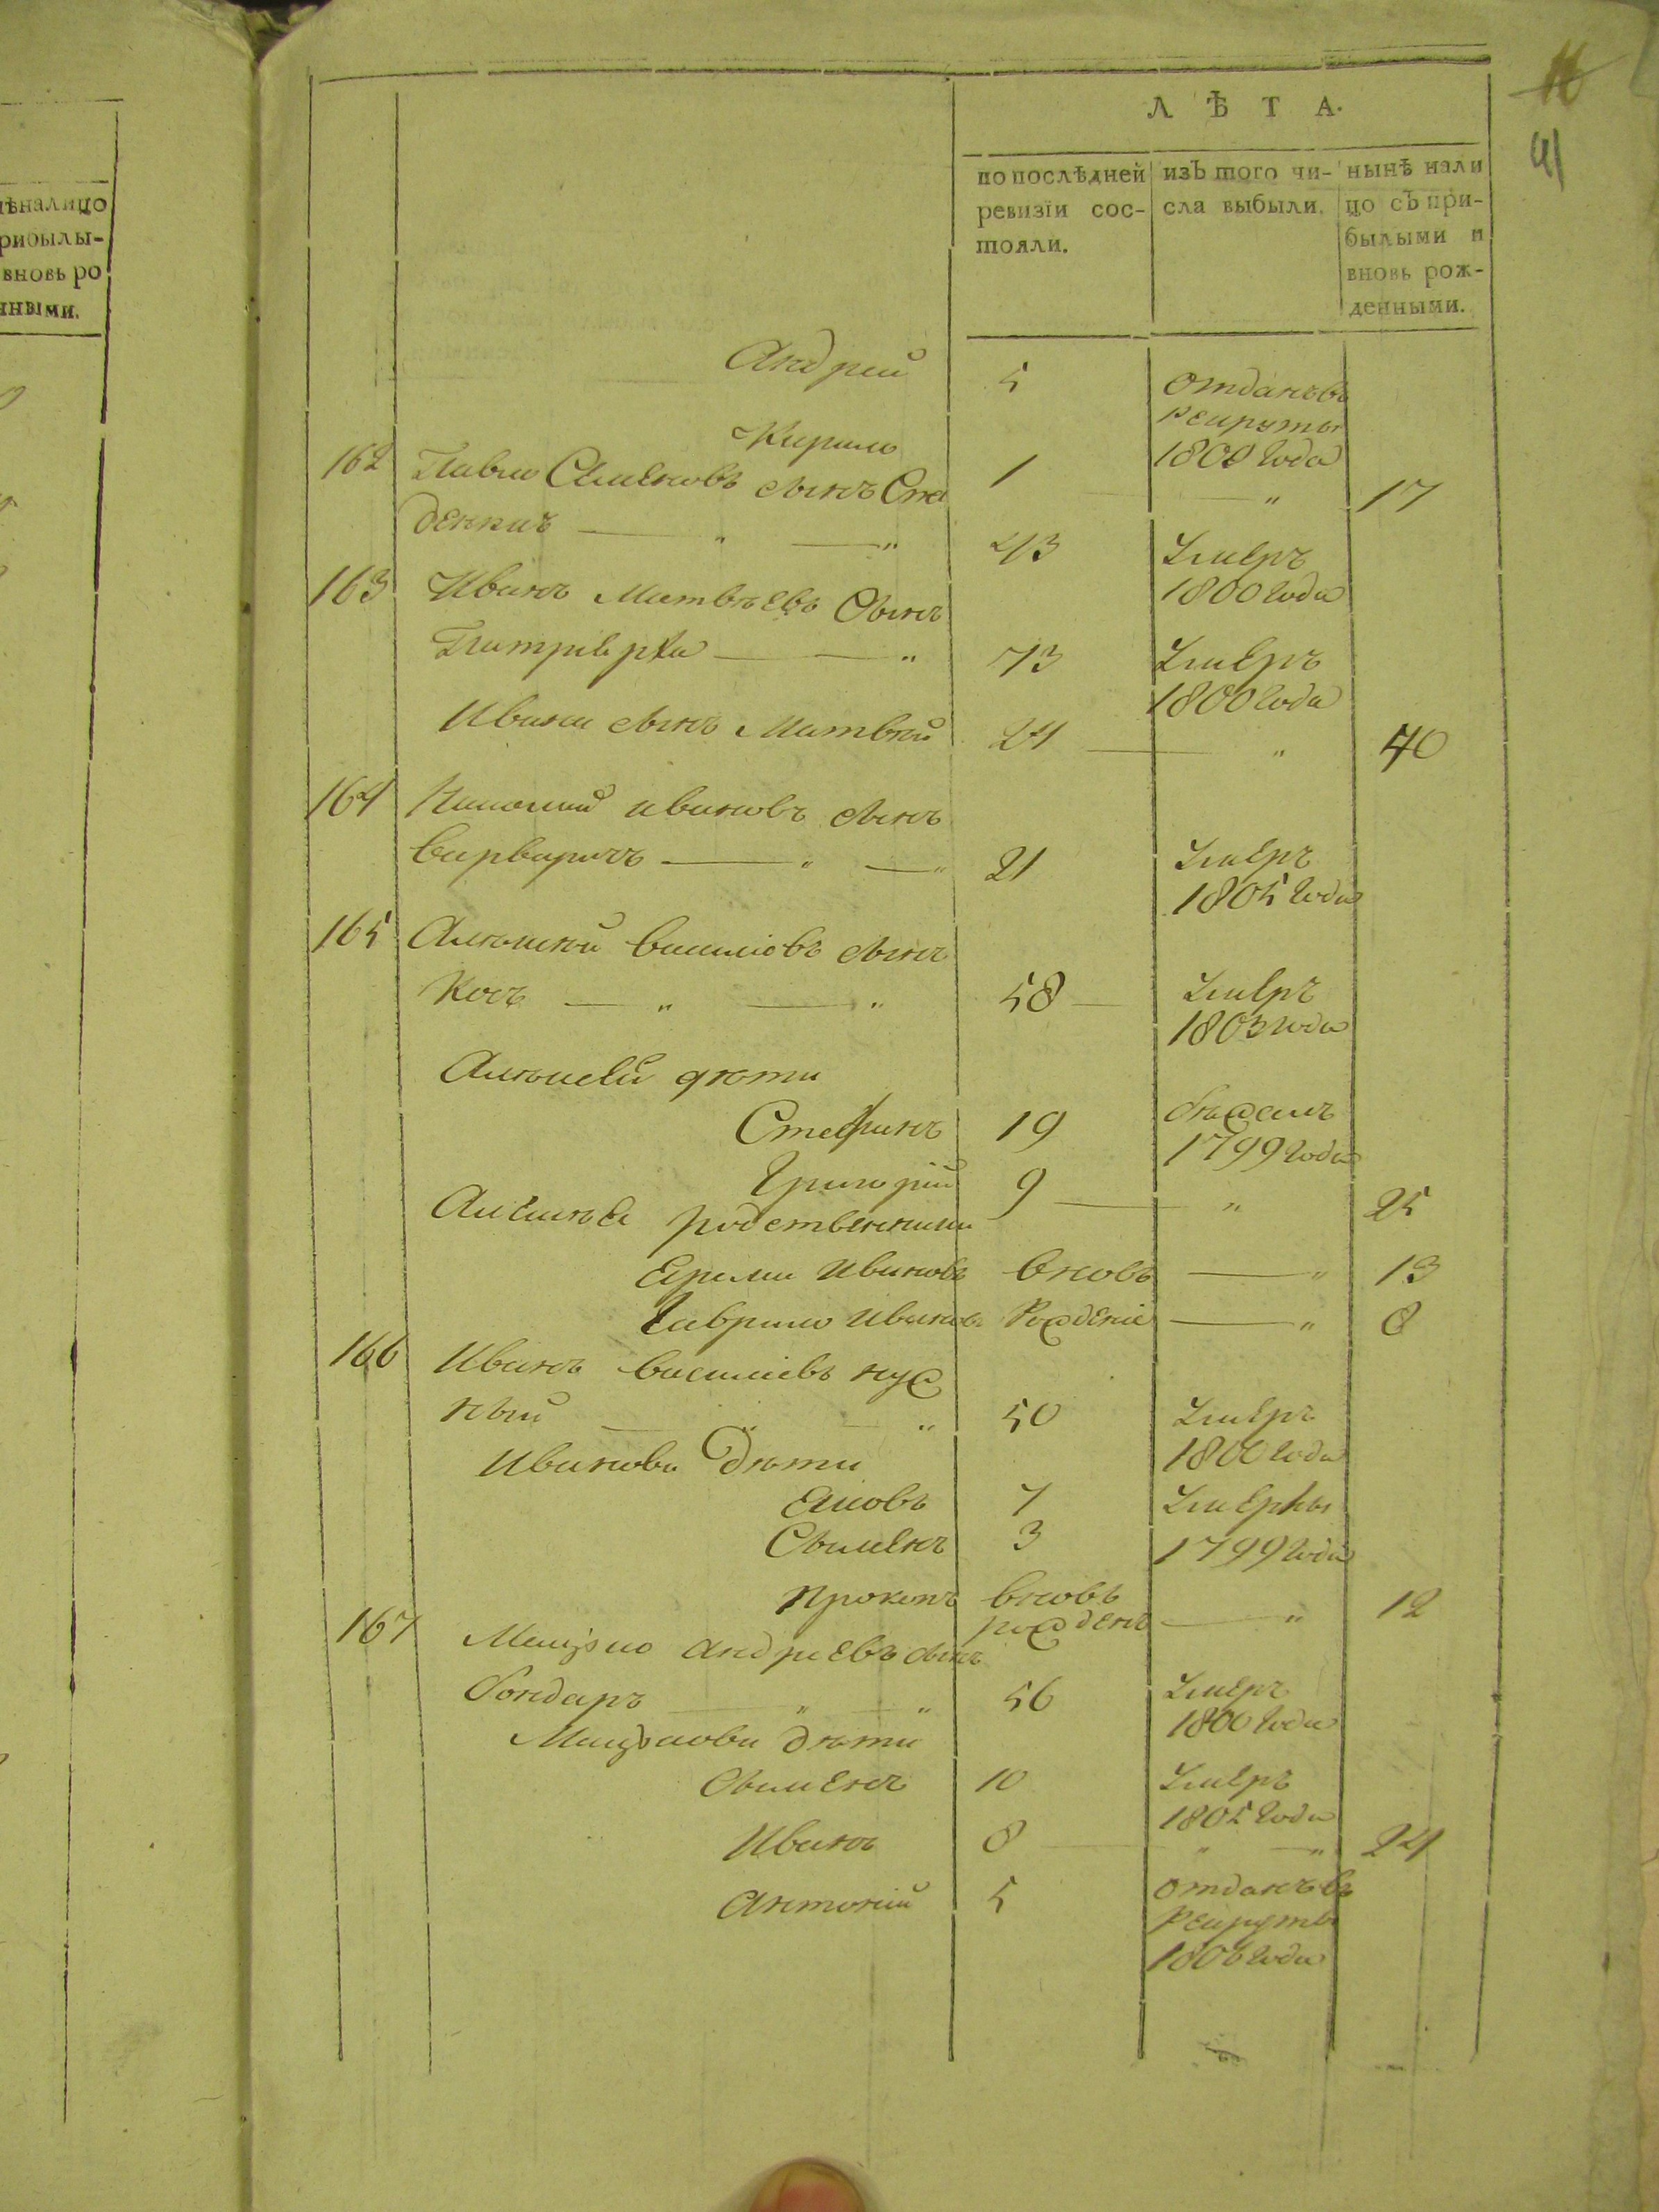 ѣналицо
рибылы-
вновь ро
нными.
Л Ѣ Т А.
41
по послѣдней
ревизїи сос-
тояли.
изъ того чи-
сла выбыли.
нынѣ нали
цо съ при-
былыми и
вновь рож-
денными.
Андрей 5 отданъ въ
рекруты
1808 года
Кирило 1 " 17
162 Павло Семеновъ сынъ
денкихъ " " 43 Умеръ
1800 года
163 Иванъ Матвѣевъ Сынъ
" 73 Умеръ
1800 года
Ивана сынъ Матвѣй 24 " 40
164 Ивановъ сынъ
Варваричъ " " 21 Умеръ
1805 года
165 Алексѣй Василіевъ сынъ
Косъ " " 58 Умеръ
1803 года
Алексѣя дѣти
Стефанъ 19
1799 года
Григорій 9 " 25
Алексѣя родственники
Ивановъ вновь " 13
Гаврило Ивановъ " 8
166 Иванъ Василіевъ
ный " " 50 Умеръ
1800 года
Иванова дѣти
Яковъ 7 Умерлы
Сѣменъ 3 1799 года
Прокопъ вновь
рожденъ " 12
167 Андреевъ сынъ
Бондаръ " " 56 Умеръ
1800 года
дѣти
Сѣменъ 10 Умеръ
1805 года
Иванъ 8 " " 24
Антоній 5 отданъ въ
рекруты
1806 года